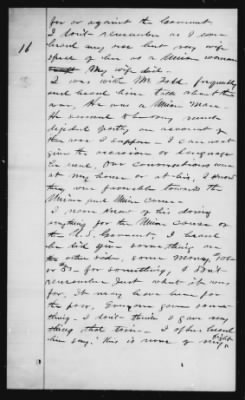 16
for or against the Government
I don't remember as I ever
heard any one but my wife
speak of him as a Union woman
My wife did.
I was with Mr. frequently
and heard him talk about the
war. He was a Union man.
He seemed to be very much
dejected partly on account of
the war I suppose. I can not
give the occasion or language
he used. Our conversations were
at my house or at his, I know
they were favorable towards the
Union and Union cause.
I never knew of his doing
anything for the Union cause or
the U.S. Government. I heard
he did give something on
the other side, some money $
or $5- for something, I don't
remember just what it was
for. It may have been for
the poor. Everyone gave some-
thing - I don't think I gave any
thing that time - I often heard
him say: "this is none of my fight